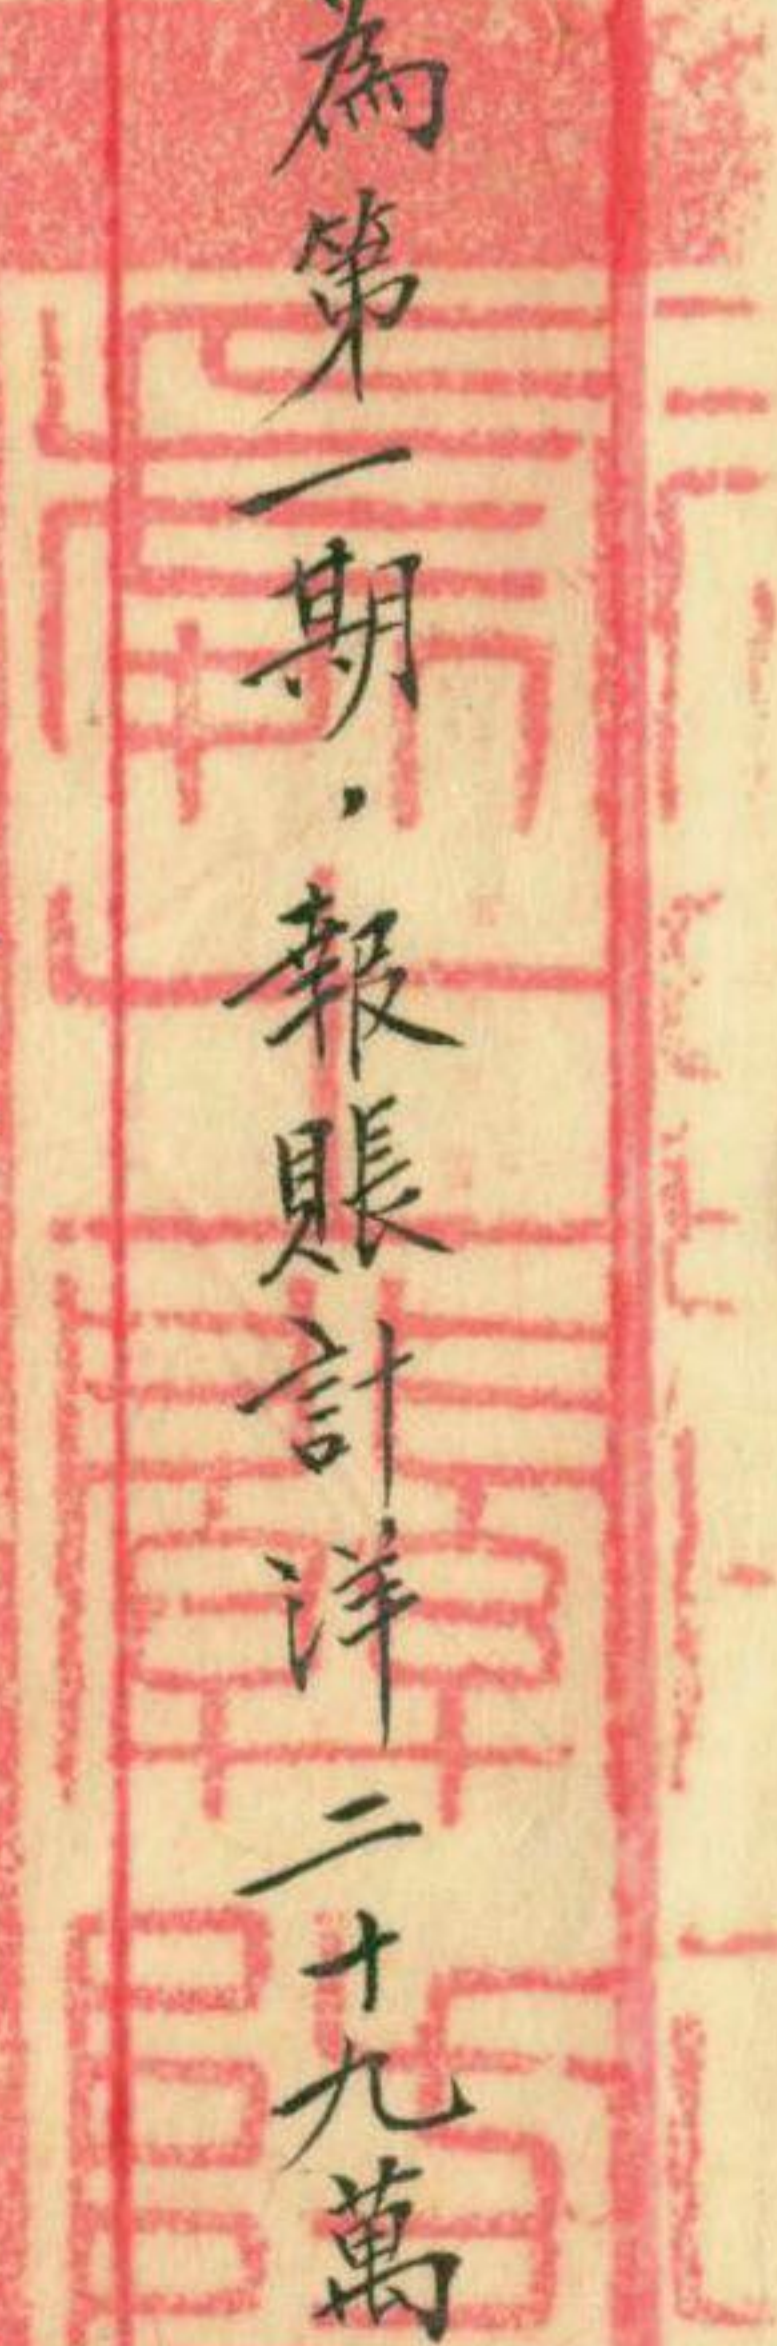 為第一期，報賬計洋二十九萬